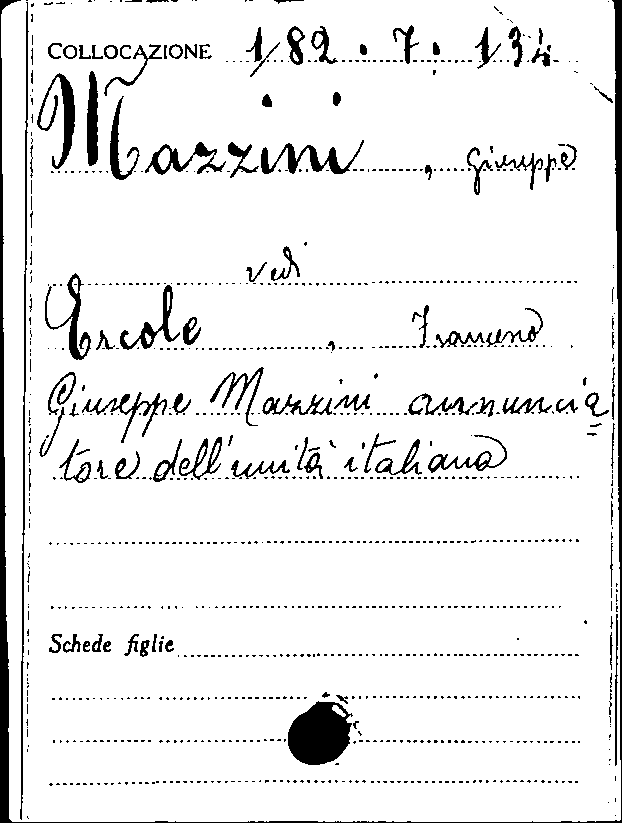 COLLOCAZIONE 182.7.134
Mazzini, Giuseppe
vedi
Ercole, Francesco
Giuseppe Mazzini annuncia
tore dell'unità italiana
Schede figlie